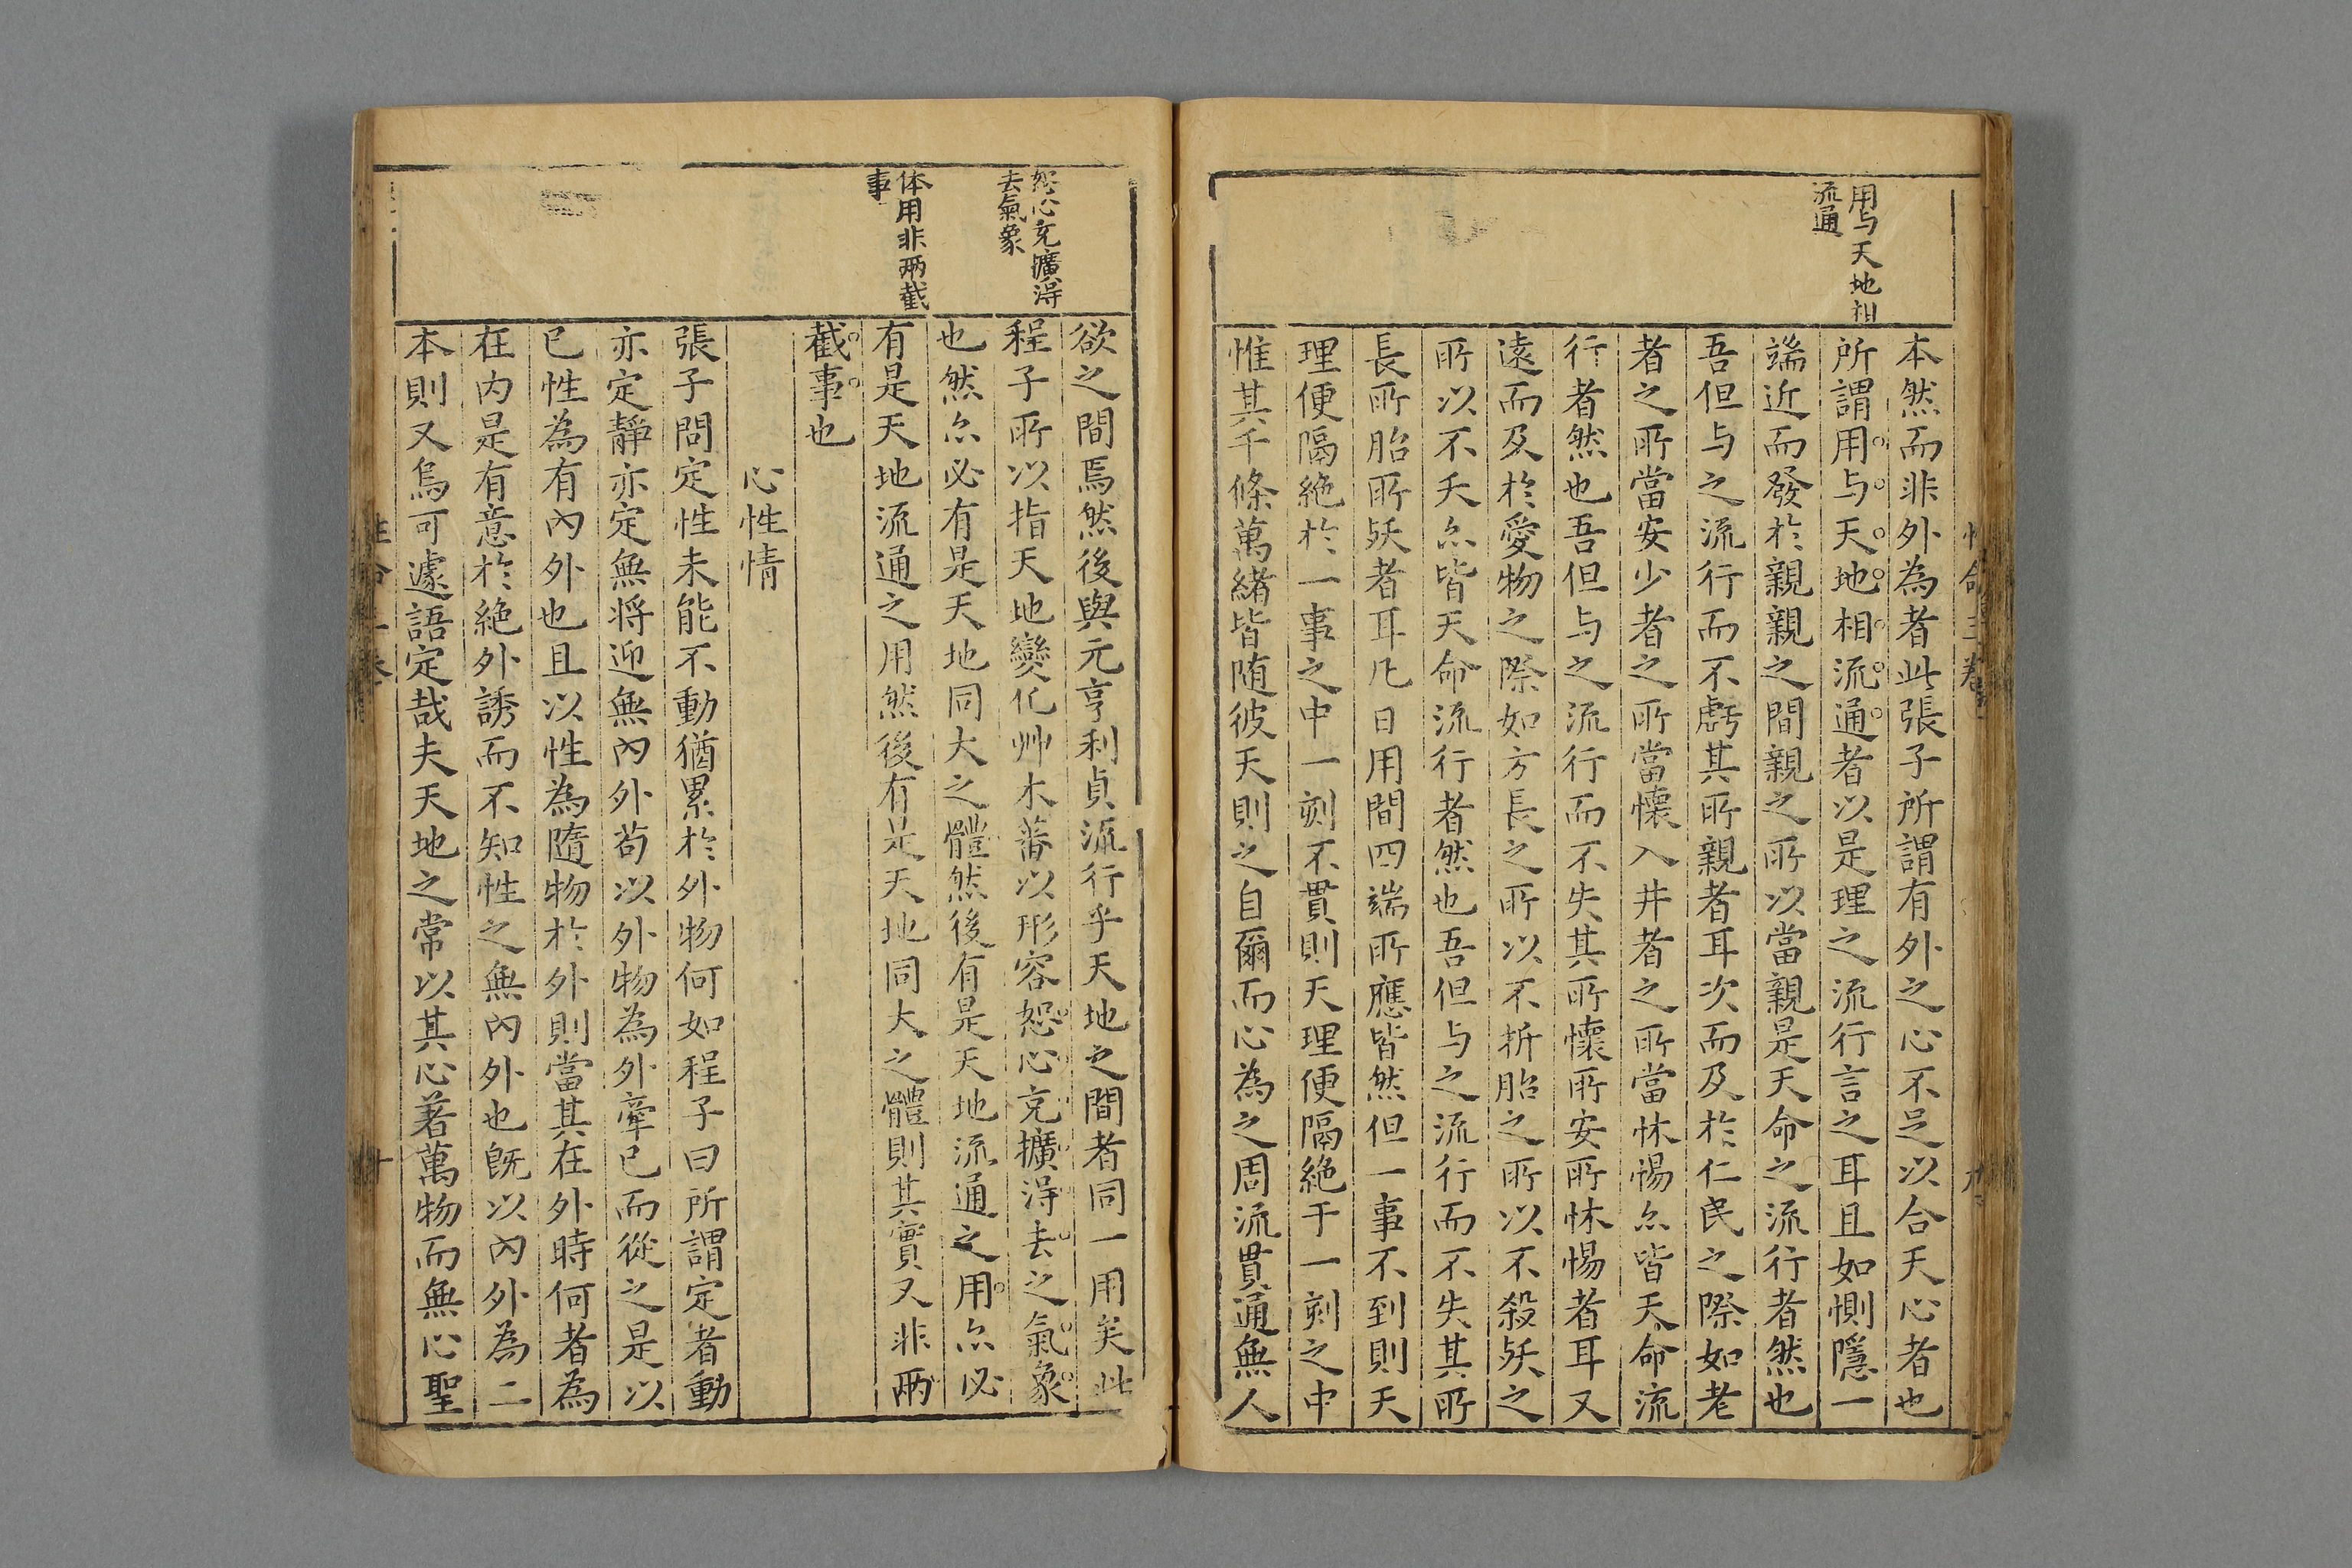 用与天地相
流通
本然而非外為者此張子所謂有外之心不足以合天心者也
所謂用与天地相流通者以是理之流行言之耳且如惻隱一
端近而發於親親之間親之所以當親是天命之流行者然也
吾但与之流行而不虧其所親者耳次而及於仁民之際如老
者之所當安少者之所當懷入井者之所當怵惕亦皆天命流
行者然也吾但与之流行而不失其所懷所安所怵惕者耳又
遠而及於愛物之際如方長之所以不折胎之所以不殺殀之
所以不夭亦皆天命流行者然也吾但与之流行而不失其所
長所胎所殀者耳凡日用間四端所應皆然但一事不到則天
理便隔絶於一事之中一刻不貫則天理便隔絶于一刻之中
惟其千條萬緒皆随彼天則之自爾而心為之周流貫通無人
恕心充擴得
去氣象
体用非兩截
事
欲之間焉然後與元亨利貞流行乎天地之間者同一用矣此
程子所以指天地變化艸木蕃以形容恕心充擴得去之氣象
也然亦必有是天地同大之體然後有是天地流通之用亦必
有是天地流通之用然後有是天地同大之體則其實又非兩
截事也
心性情
張子問定性未能不動猶累於外物何如程子曰所謂定者動
亦定靜亦定無将迎無內外苟以外物為外牽已而從之是以
已性為有內外也且以性為隨物於外則當其在外時何者為
在內是有意於絶外誘而不知性之無內外也旣以內外為二
本則又烏可遽語定哉夫天地之常以其心著萬物而無心聖